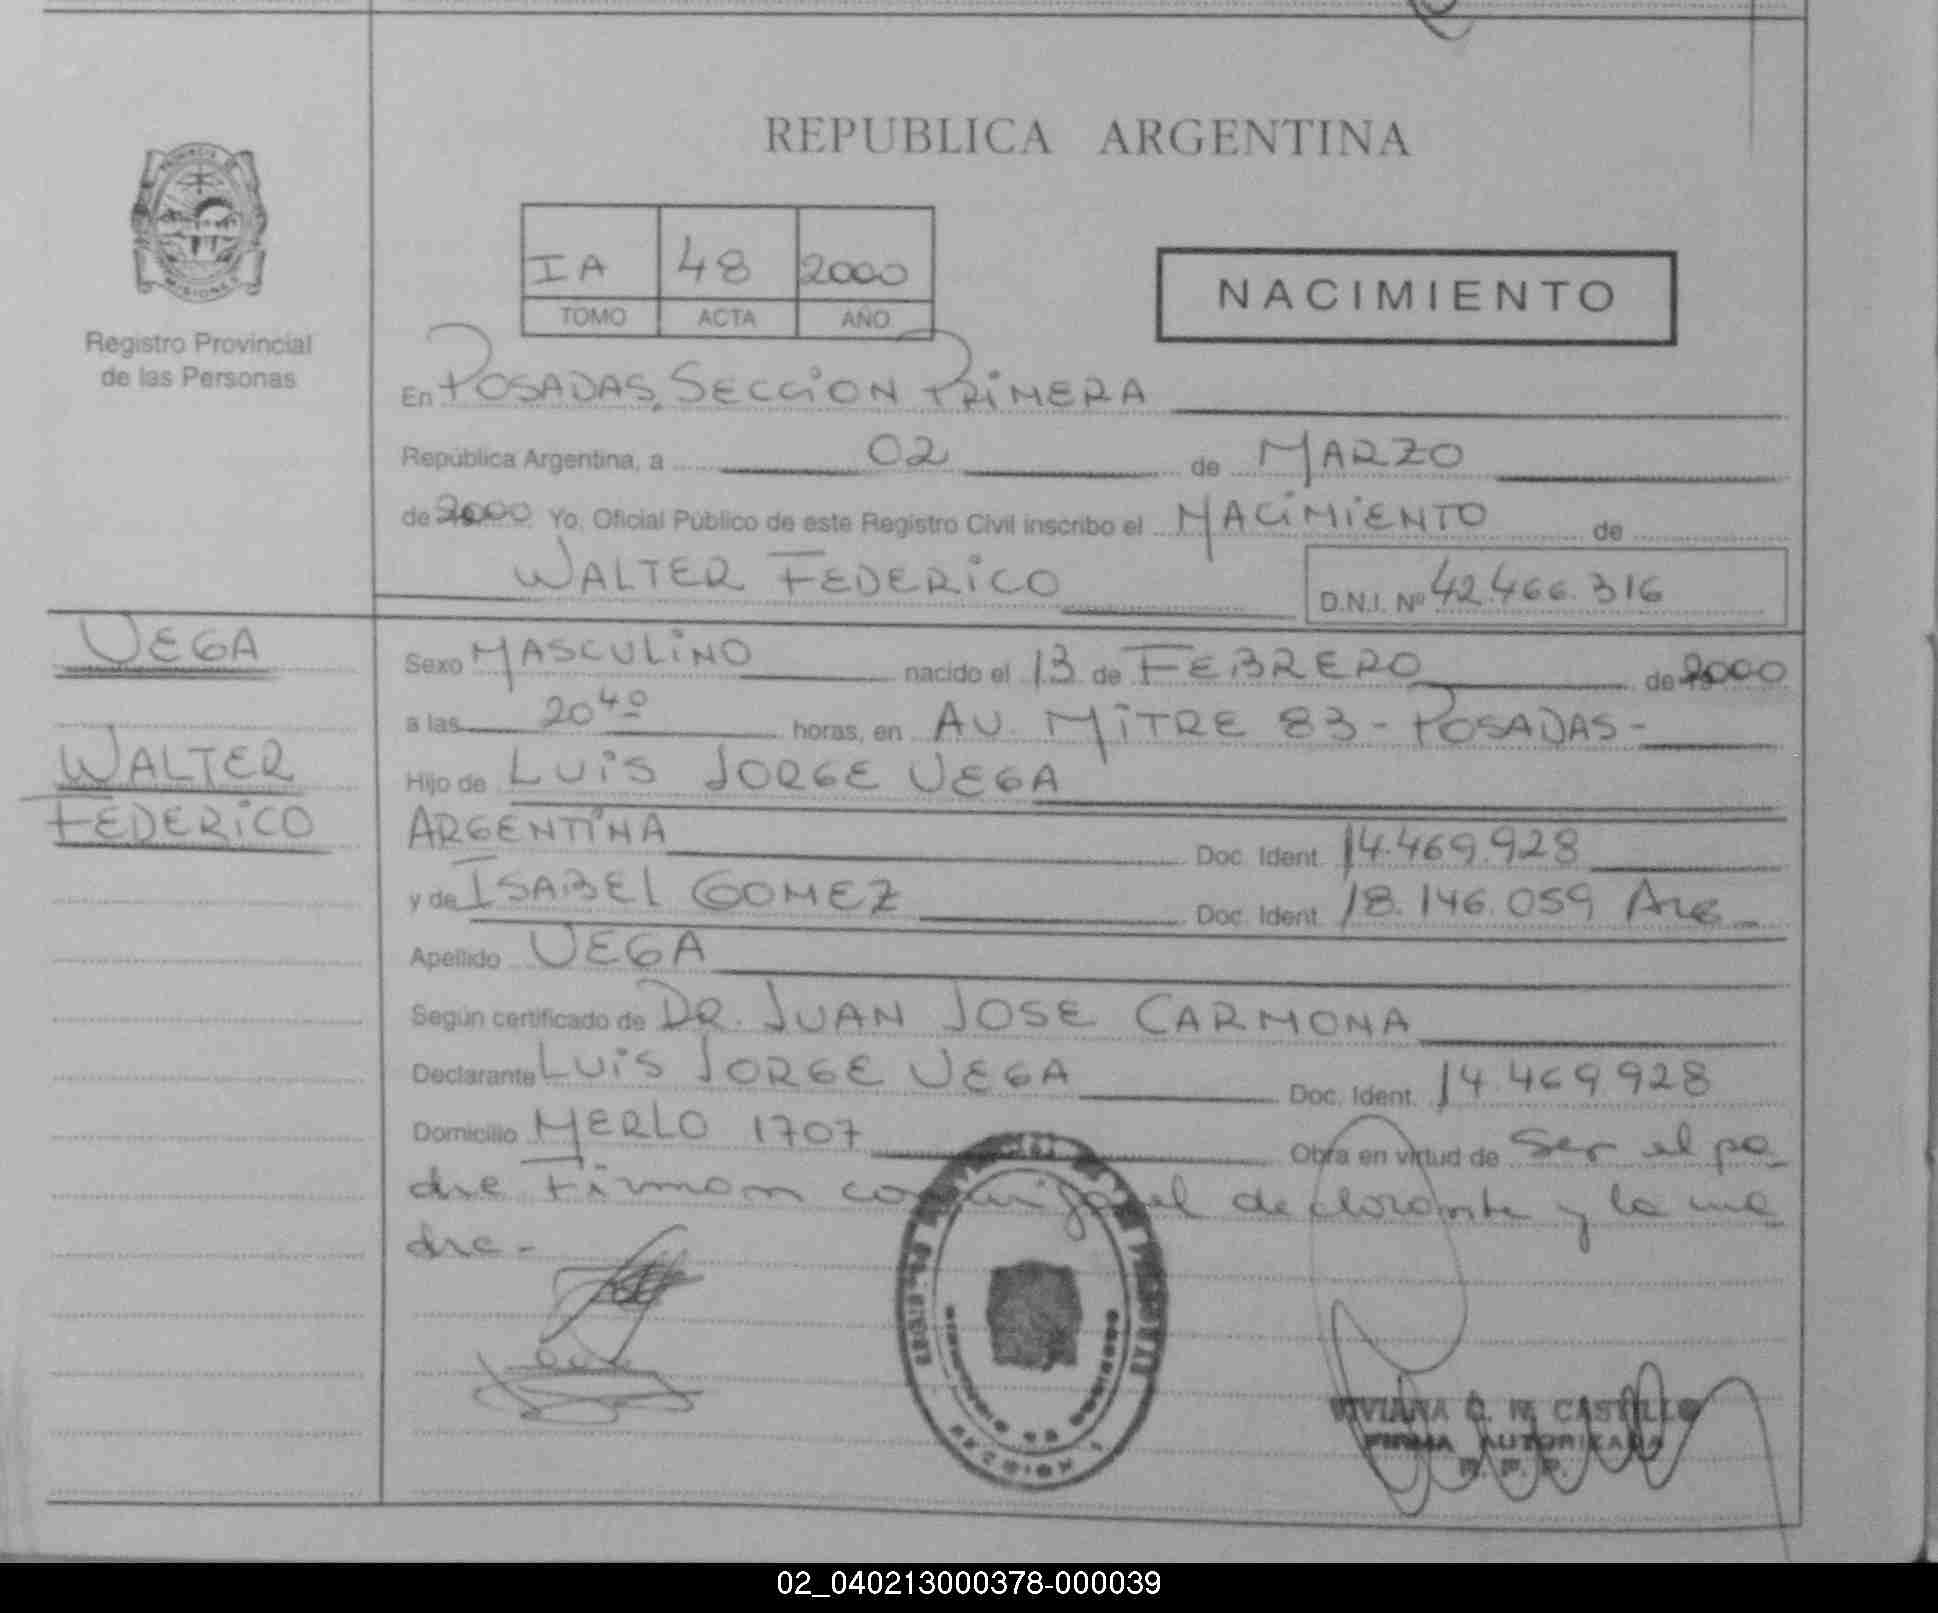 REPUBLICA ARGENTINA
PROVINCIA DE
MISIONES
Registro Provincial
de las Personas
IA 48 2000
TOMO ACTA AÑO
NACIMIENTO
En POSADAS, SECCION PRIMERA
República Argentina, a 02 de MARZO
de 2000 Yo, Oficial Público de este Registro Civil inscribo el NACIMIENTO de
WALTER FEDERICO D.N.I. Nº 42.466.316
VEGA
WALTER
FEDERICO
Sexo MASCULINO nacido el 13 de FEBRERO de 2000
a las 20 40 horas, en AV. MITRE 83 - POSADAS -
Hijo de LUIS JORGE VEGA
ARGENTINA Doc. Ident. 14.469.928
y de ISABEL GOMEZ Doc. Ident. 18.146.059 ARG
Apellido VEGA
Según certificado de DR. JUAN JOSE CARMONA
Declarante LUIS JORGE VEGA Doc. Ident. 14.469.928
Domicilio MERLO 1707 Obra en virtud de ser el pa
dre Firman conmigo el declarante y la ma
dre -
SECCION 1
VIVIANA C. CASTILLO
FIRMA AUTORIZADA
R. P. P.
02_040213000378-000039